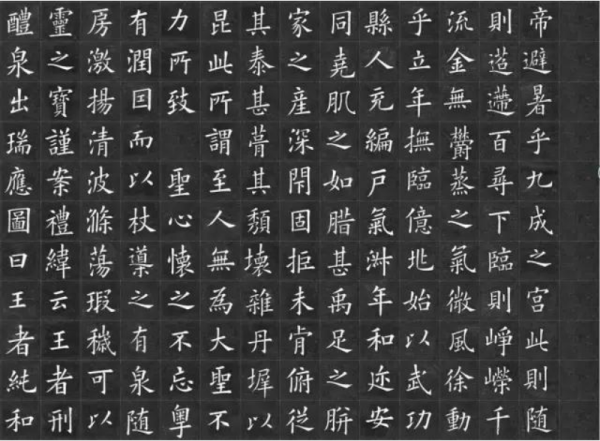 帝避暑乎九成之宮此則随
則迢遰百尋下臨則崢嶸千
流金無欝蒸之氣微風徐動
乎立年撫臨億兆始以武功
縣人充編戶氣淑年和迩安
同堯肌之如腊甚禹足之胼
家之產深閇固拒未肯俯從
其泰甚葺其頹壞雜丹墀以
昆此所謂至人無為大聖不
力所致聖心懷之不忘粤
有潤囙而以杖導之有泉随
房激揚清波滌蕩瑕穢可以
靈之寶謹案禮緯云王者刑
醴泉出瑞應圖曰王者純和